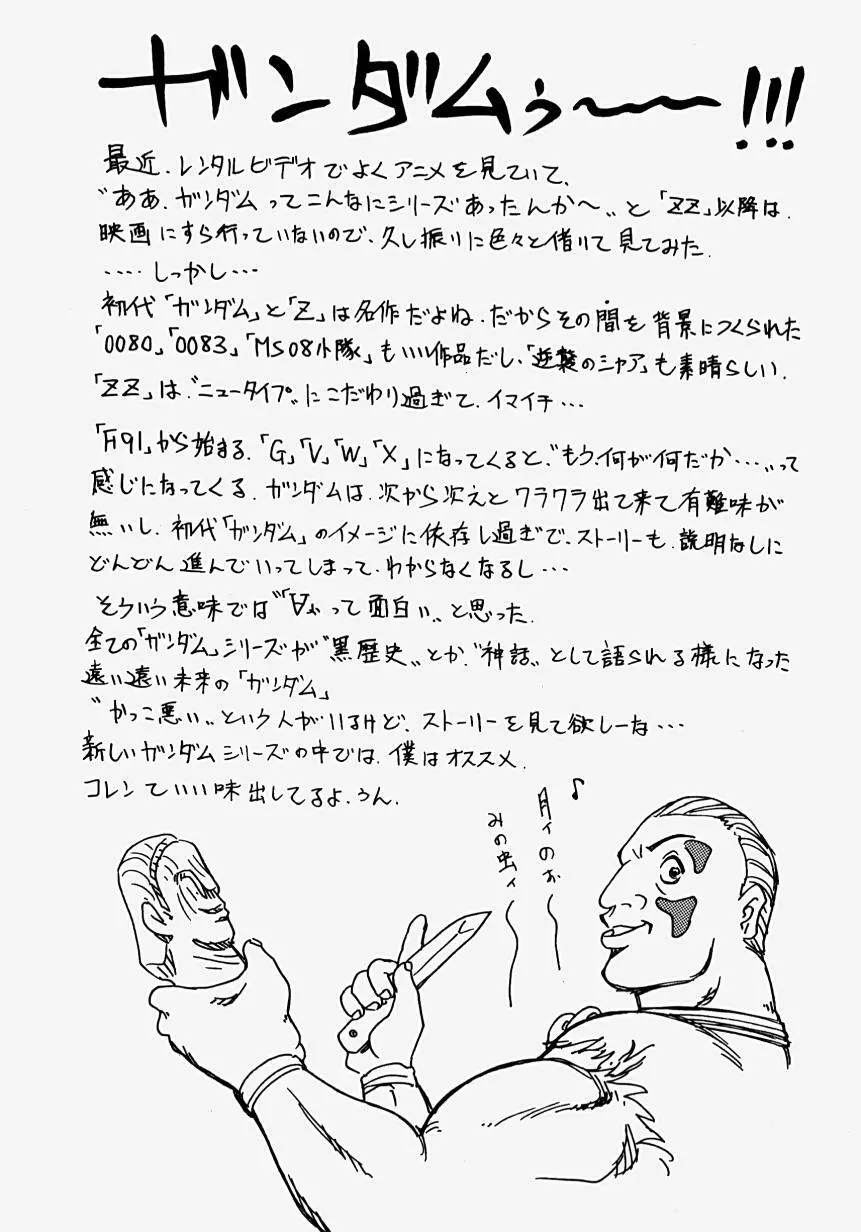 ガンダムぅ〜〜!!!
最近、レンタルビデオでよくアニメを見ていて、
〝ああ、ガンダムってこんなにシリーズあったんか〜〟と「ZZ」以降は、
映画にすら行っていないので、久し振りに色々と借りて見てみた。
‥‥しっかし…
初代「ガンダム」と「Z」は名作だよね。だからその間を背景につくられた
「0080」「0083」「MS08小隊」もいい作品だし、「逆襲のシャア」も素晴らしい。
「ZZ」は〝ニュータイプ〟にこだわり過ぎて、イマイチ…
「F91」から始まる、「G」「V」「W」「X」になってくると、〝もう、何が何だか‥‥〟って
感じになってくる。ガンダムは、次から次えとワラワラ出て来て有難味が
無いし、初代「ガンダム」のイメージに依存し過ぎで、ストーリーも、説明なしに
どんどん進んでいってしまって、わからなくなるし…
そういう意味では〝∀〟って面白い。と思った。
全ての「ガンダム」シリーズが〝黒歴史〟とか、〝神話〟として語られる様になった
遠い遠い未来の「ガンダム」
〝かっこ悪い〟という人がいるけど、ストーリーを見て欲しーな…
新しいガンダムシリーズの中では、僕はオススメ。
コレンていい味出してるよ、うん。
♪
月ィのォ〜
みの虫ィ〜